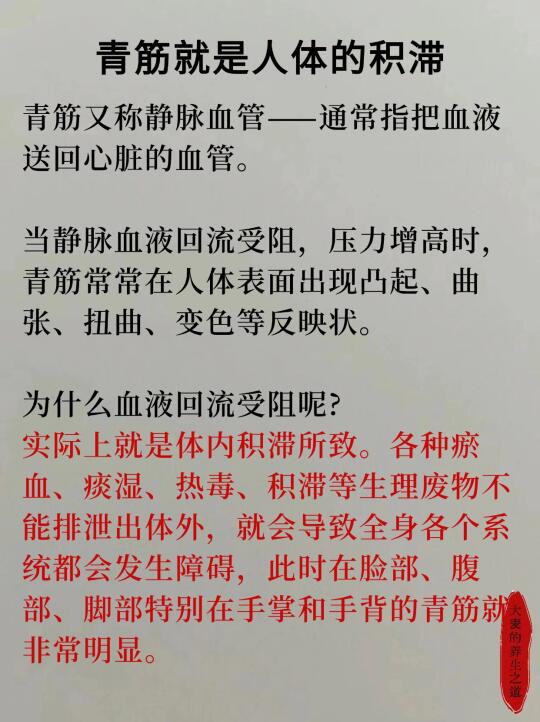 青筋就是人体的积滞
青筋又称静脉血管——通常指把血液
送回心脏的血管。
当静脉血液回流受阻，压力增高时，
青筋常常在人体表面出现凸起、曲
张、扭曲、变色等反映状。
为什么血液回流受阻呢?
实际上就是体内积滞所致。各种瘀
血、痰湿、热毒、积滞等生理废物不
能排泄出体外，就会导致全身各个系
统都会发生障碍，此时在脸部、腹
部、脚部特别在手掌和手背的青筋就
非常明显。
大麦的养生之道